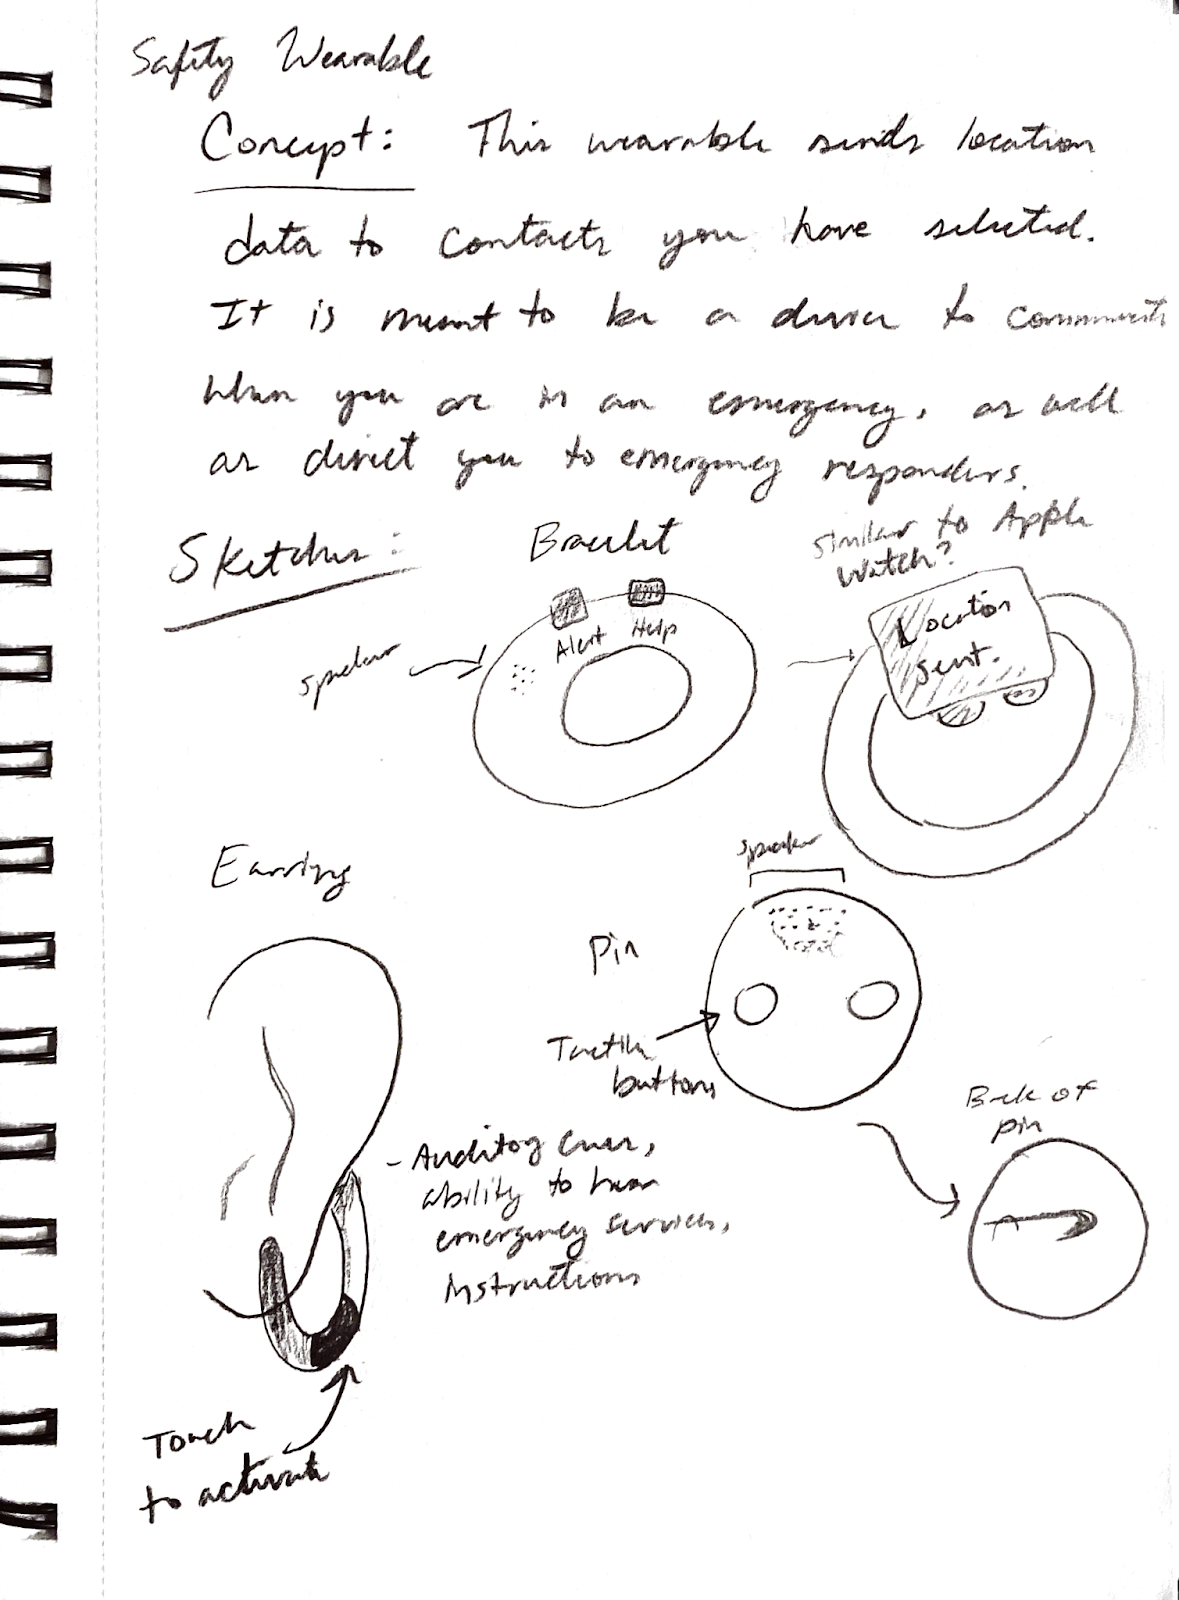 Safety Wearable
Concept: This wearable sends location
data to contacts you have selected.
It is meant to be a device to communicate
when you are in an emergency, as well
as direct you to emergency responders.
Sketches:
Bracelet
similar to Apple
Watch?
Alert
Help
speaker
Location
sent.
Earring
speaker
Pin
Tactile
buttons
Back of
pin
- Auditory cues,
ability to hear
emergency services,
instructions
Touch
to activate